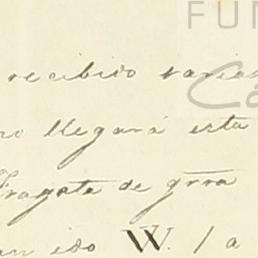 FUN
recibido varias
no llegará esta
Fragata de grra
an ido W. 1a